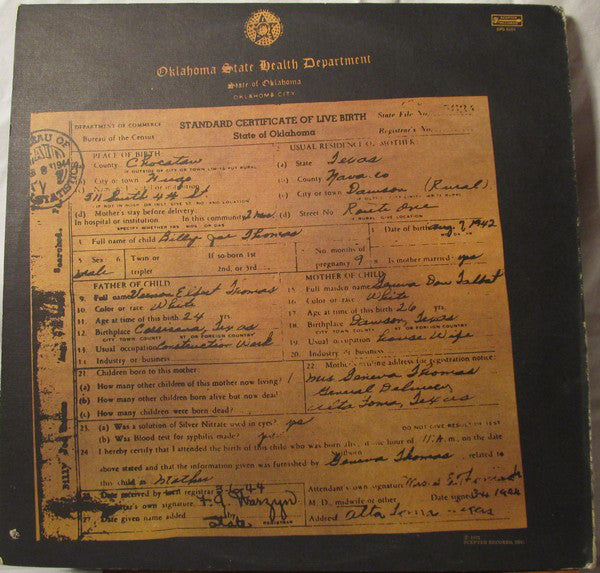 SCEPTER RECORDS
Oklahoma State Health Department
State of Oklahoma
OKLAHOMA CITY
DEPARTMENT OF COMMERCE
Bureau of the Census
STANDARD CERTIFICATE OF LIVE BIRTH
State of Oklahoma
State File No.
Registrar's No.
PLACE OF BIRTH
County Choctaw
IF OUTSIDE OF CITY OR TOWN LIMITS PUT RURAL
City or town Hugo
(d) Mother's stay before delivery:
In hospital or institution In this community 2 mos.
SPECIFY WHETHER YRS. MOS. OR DAYS
USUAL RESIDENCE OF MOTHER:
(a) State Texas
County Navarro
(c) City or town Dawson (Rural)
(d) Street No Route One
IF RURAL GIVE LOCATION
4 Full name of child Billy Joe Thomas
Date of birth Aug 7 1942
5 Sex male
6 Twin or triplet
If so-born 1st 2nd, or 3rd
No. months of pregnancy 9
Is mother married yes
FATHER OF CHILD
9. Full name Vernon Elbert Thomas
10. Color or race White
11. Age at time of this birth 24 yrs
12. Birthplace Corsicana, Texas
CITY TOWN COUNTY ST. OR FOREIGN COUNTRY
Usual occupation Construction Work
14. Industry or business
MOTHER OF CHILD
15 Full maiden name Geneva Talbat
16 Color or race White
17. Age at time of this birth 26 yrs
18. Birthplace Dawson, Texas
ST. OR FOREIGN COUNTRY
19. Usual occupation house Wife
20. Industry or business
21 Children born to this mother
(a) How many other children of this mother now living? 1
(b) How many other children born alive but now dead?
(c) How many children were born dead?
22 Mother's mailing address for registration notice:
Mrs Geneva Thomas
General Delivery
Alta Loma, Texas
23. (a) Was a solution of Silver Nitrate used in eyes? yes
(b) Was Blood test for syphilis made? yes
DO NOT GIVE RESULT OF TEST
24 I hereby certify that I attended the birth of this child who was born alive at the hour of 11 A.m., on the date
above stated and that the information given was furnished by Geneva Thomas, related to
this child as Mother
Date received by local registrar
Registrar's own signature
27. Date given name added by
REGISTRAR
Attendant's own signature
M. D., midwife or other
Date signed
Address Alta Loma Texas
Searched
Billy Joe Thomas
SCEPTER RECORDS, INC.